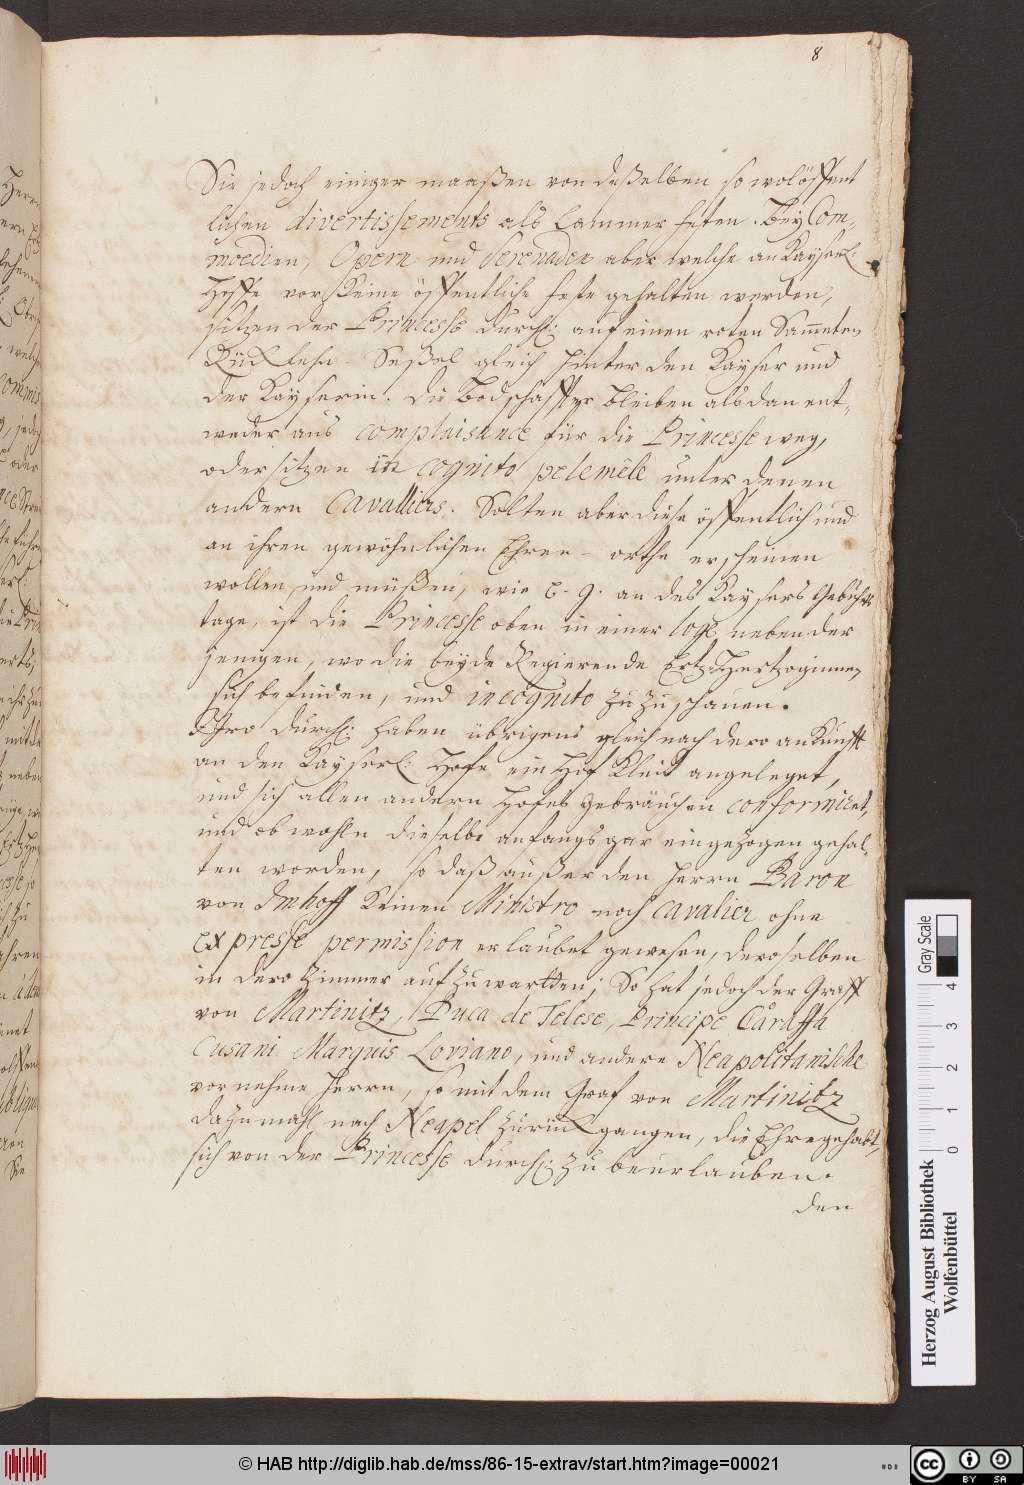 8
Sie jedoch einiger maaßen von deßelben so wol öffent
lichen divertissements als Cammer festen. Bey Com-
moedien, Opern und Serenaden aber welche am Kayserl:
Hoffe vor keine öffentliche feste gehalten werden,
sitzen der Princesse Durchl: auf einen roten Sammeten
Rück lehn-Seßel gleich hinter den Kayser und
der Kayserin. Die Bodschaffter bleiben alsdan ent-
weder aus complaisance für die Princesse weg,
oder sitzen in cognito pelemêle unter denen
andern Cavalliers. Solten aber diese öffentlich und
an ihren gewöhnlichen Ehren-orthe erscheinen
wollen und müßen, wie E. g. an des Kaysers Gebuhrts
tage, ist die Princesse oben in einer loge neben der
jenigen, wo die beyde Regierende Ertz-Hertzoginnen
sich befinden, und incognito zu zu schauen.
Ihro Durchl: haben übrigens gleich nach dero ankunfft
an den Kayserl: Hofe ein Hof Kleid angeleget,
und sich allen andern Hofes gebräuchen conformiret,
und ob wohln dieselbe anfangs gar eingezogen gehal-
ten worden, so daß außer den Herrn Baron
von Imhoff keinen Ministro noch Cavalier ohne
expresse permission erlaubet gewesen, deroselben
in dero Zimmer aufzuwartten; So hat jedoch der Graff
von Martinitz, Duca de Telese, Principe Caraffa
Cusani Marquis Loviano, und andere Neapolitanische
vornehme Herrn, so mit dem Graf von Martinitz
dazumahl nach Neapel zurück gangen, die Ehre gehabt,
sich von der Princesse Durchl: zu beurlauben.
den
Herzog August Bibliothek
Wolfenbüttel
Gray Scale
0 1 2 3 4
© HAB http://diglib.hab.de/mss/86-15-extrav/start.htm?image=00021
CC BY SA